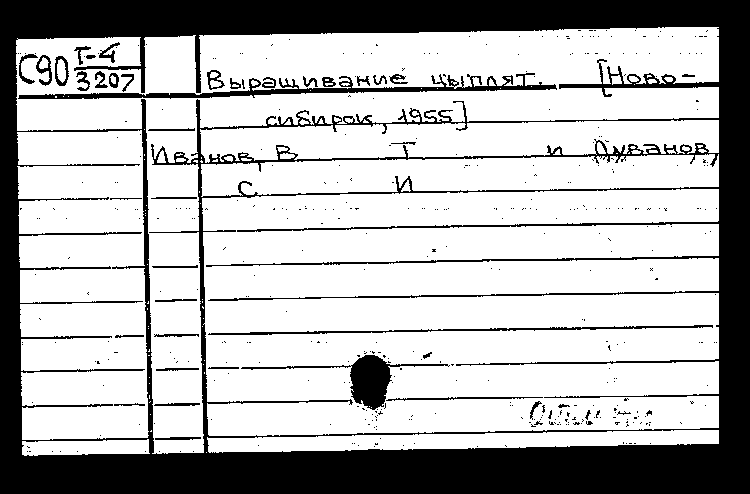 С90 Т-4
3207
Выращивание цыплят. [Ново-
сибирск, 1955]
Иванов, В Т и
С И